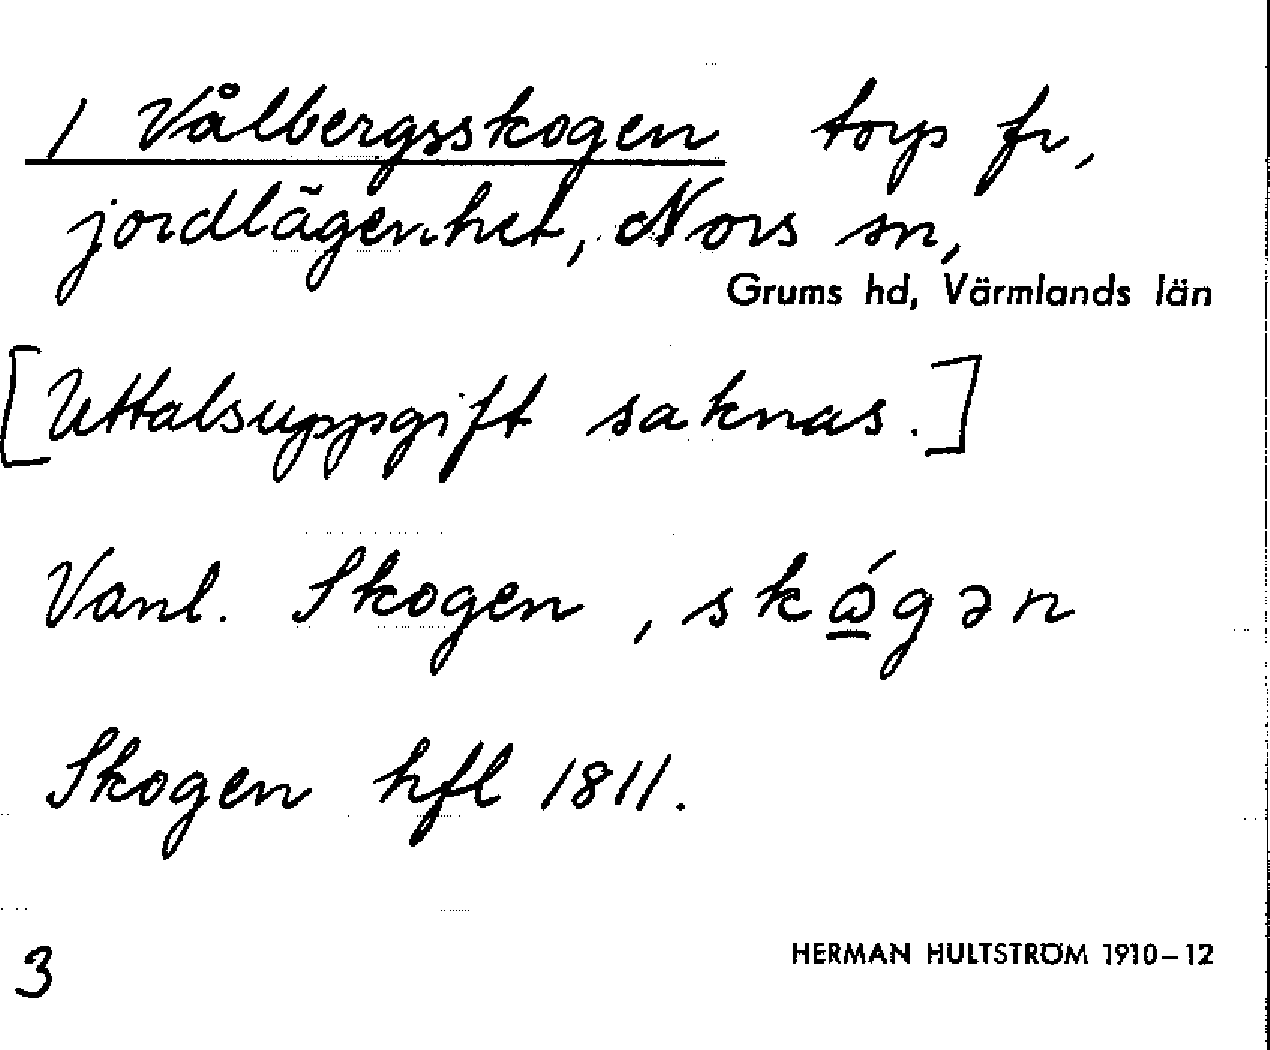 1 Vålbergsskogen torp fr,
jordlägenhet, Nors sn,
Grums hd, Värmlands län
[Uttalsuppgift saknas.]
Vanl. Skogen, skώ̲gən
Skogen hfl 1811.
3
HERMAN HULTSTRÖM 1910–12